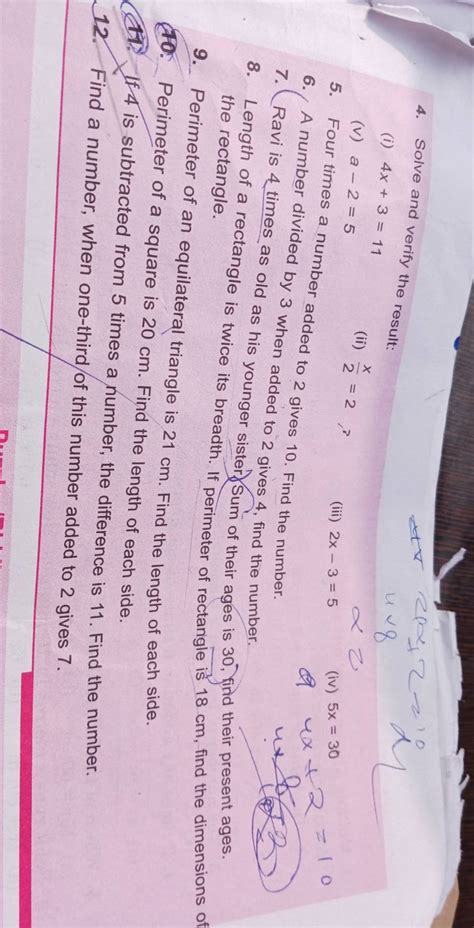 4. Solve and verify the result:
(i) 4x + 3 = 11 (ii) x/2 = 2 (iii) 2x − 3 = 5 (iv) 5x = 30
(v) a − 2 = 5
5. Four times a number added to 2 gives 10. Find the number.
6. A number divided by 3 when added to 2 gives 4, find the number.
7. Ravi is 4 times as old as his younger sister. Sum of their ages is 30, find their present ages.
8. Length of a rectangle is twice its breadth. If perimeter of rectangle is 18 cm, find the dimensions of
the rectangle.
9. Perimeter of an equilateral triangle is 21 cm. Find the length of each side.
10. Perimeter of a square is 20 cm. Find the length of each side.
11. If 4 is subtracted from 5 times a number, the difference is 11. Find the number.
12. Find a number, when one-third of this number added to 2 gives 7.
4x + 2 = 10